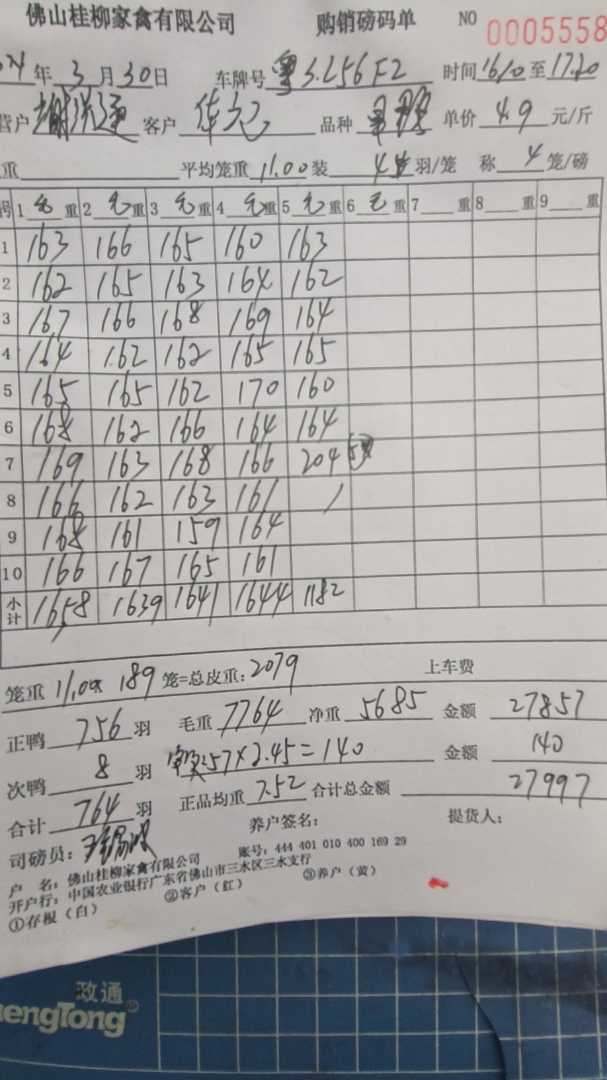 佛山桂柳家禽有限公司 购销磅码单 NO 0005558
年 3 月 30 日 车牌号 粤S.L56F2 时间 16/10 至 17.20
营户 谢洪通 客户 华记 品种 单价 4.9 元/斤
重 平均笼重 11.00 装 4 羽/笼 称 4 笼/磅
号 1 毛 重 2 毛 重 3 毛 重 4 毛 重 5 毛 重 6 毛 重 7 重 8 重 9 重
1 163 166 165 160 163
2 162 165 163 164 162
3 167 166 168 169 164
4 164 162 162 165 165
5 165 165 162 170 160
6 168 162 166 164 164
7 169 163 168 166 204
8 166 162 163 161 /
9 168 161 159 164
10 166 167 165 161
小计 1658 1639 1641 1644 1182
笼重 11.00 × 189 笼=总皮重: 2079 上车费
正鸭 756 羽 毛重 7764 净重 5685 金额 27857
次鸭 8 羽 57×2.45=140 金额 140
合计 764 羽 正品均重 7.52 合计总金额 27997
司磅员: 养户签名: 提货人:
户 名: 佛山桂柳家禽有限公司 账号: 444 401 010 400 169 29
开户行: 中国农业银行广东省佛山市三水区三水支行
①存根(白) ②客户(红) ③养户(黄)
政通®
hengTong